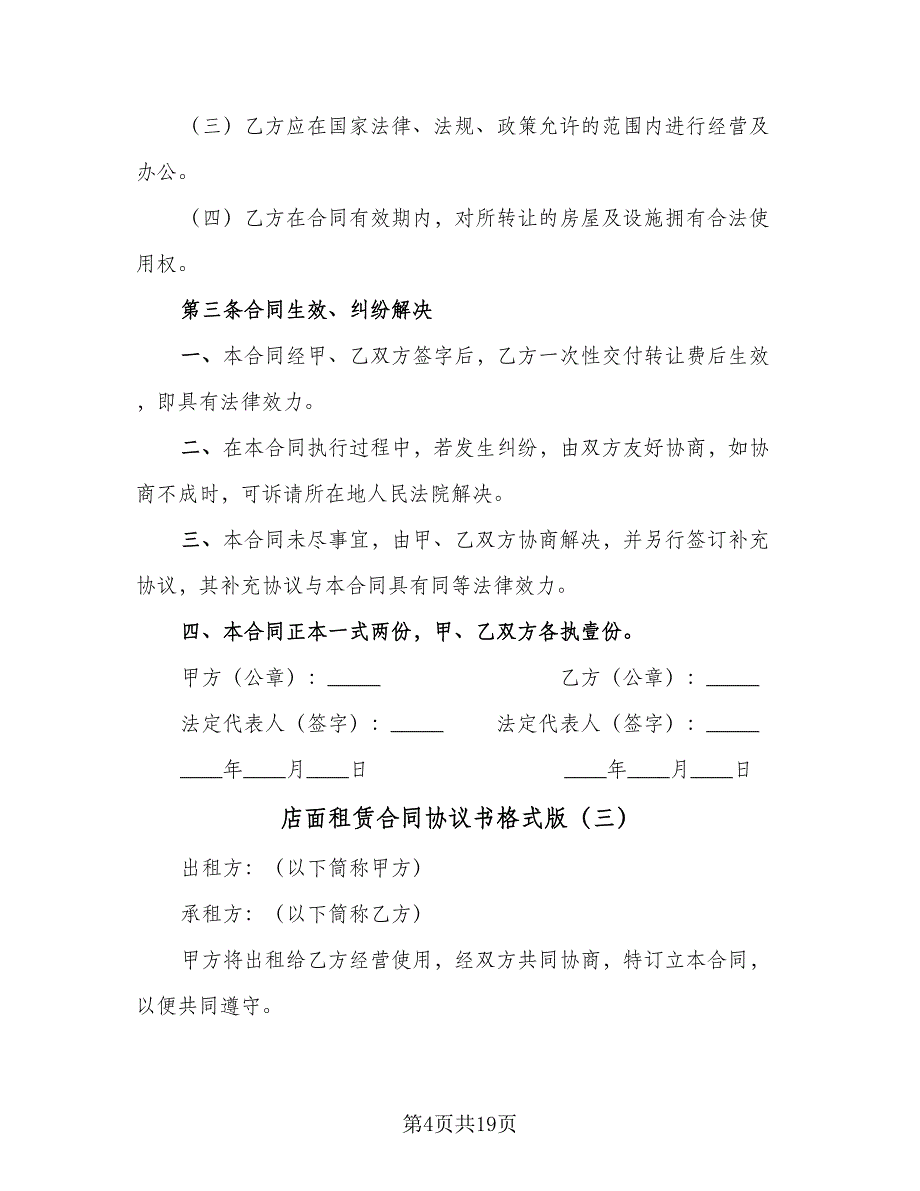 （三）乙方应在国家法律、法规、政策允许的范围内进行经营及
办公。
（四）乙方在合同有效期内，对所转让的房屋及设施拥有合法使
用权。
第三条合同生效、纠纷解决
一、本合同经甲、乙双方签字后，乙方一次性交付转让费后生效
，即具有法律效力。
二、在本合同执行过程中，若发生纠纷，由双方友好协商，如协
商不成时，可诉请所在地人民法院解决。
三、本合同未尽事宜，由甲、乙双方协商解决，并另行签订补充
协议，其补充协议与本合同具有同等法律效力。
四、本合同正本一式两份，甲、乙双方各执壹份。
甲方（公章）：_____ 乙方（公章）：_____
法定代表人（签字）：_____ 法定代表人（签字）：_____
____年____月____日 ____年____月____日
店面租赁合同协议书格式版（三）
出租方：（以下简称甲方）
承租方：（以下简称乙方）
甲方将出租给乙方经营使用，经双方共同协商，特订立本合同，
以便共同遵守。
第4页共19页